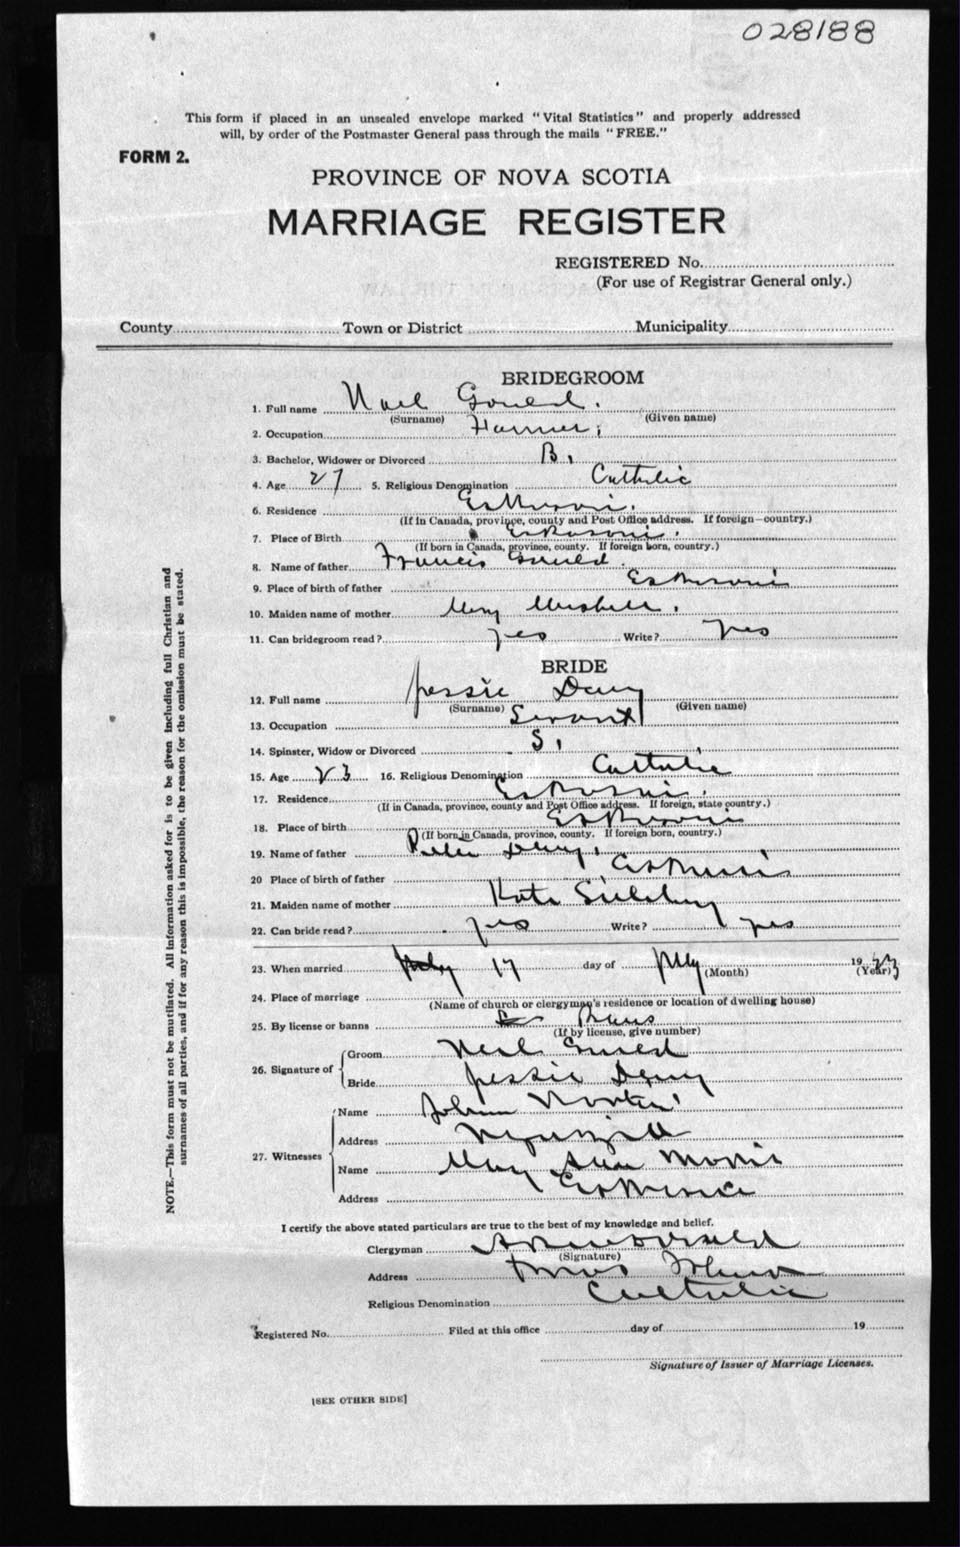 028188
This form if placed in an unsealed envelope marked "Vital Statistics" and properly addressed
will, by order of the Postmaster General pass through the mails "FREE."
FORM 2.
PROVINCE OF NOVA SCOTIA
MARRIAGE REGISTER
REGISTERED No.
(For use of Registrar General only.)
County Town or District Municipality
BRIDEGROOM
1. Full name Noel Gould.
(Surname) (Given name)
2. Occupation Farmer,
3. Bachelor, Widower or Divorced B.
4. Age 27 5. Religious Denomination Catholic
6. Residence Eskasoni.
(If in Canada, province, county and Post Office address. If foreign—country.)
7. Place of Birth Eskasoni.
(If born in Canada, province, county. If foreign born, country.)
8. Name of father Francis Gould.
9. Place of birth of father Eskasoni
10. Maiden name of mother Mary
11. Can bridegroom read? yes Write? yes
BRIDE
12. Full name Jessie Deny
(Surname) (Given name)
13. Occupation Servant
14. Spinster, Widow or Divorced S.
15. Age 23 16. Religious Denomination Catholic
17. Residence Eskasoni.
(If in Canada, province, county and Post Office address. If foreign, state country.)
18. Place of birth Eskasoni
(If born in Canada, province, county. If foreign born, country.)
19. Name of father Peter Deny.
20 Place of birth of father Eskasoni
21. Maiden name of mother Kate
22. Can bride read? yes Write? yes
23. When married 17 day of July 1923
(Month) (Year)
24. Place of marriage
(Name of church or clergyman's residence or location of dwelling house)
25. By license or banns Banns
(If by license, give number)
26. Signature of Groom Noel Gould
Bride Jessie Deny
27. Witnesses Name
Address
Name Mary Ann Morris
Address Eskasoni
I certify the above stated particulars are true to the best of my knowledge and belief.
Clergyman
(Signature)
Address
Religious Denomination Catholic
Registered No. Filed at this office day of 19
Signature of Issuer of Marriage Licenses.
[SEE OTHER SIDE]
NOTE.—This form must not be mutilated. All information asked for is to be given including full Christian and
surnames of all parties, and if for any reason this is impossible, the reason for the omission must be stated.